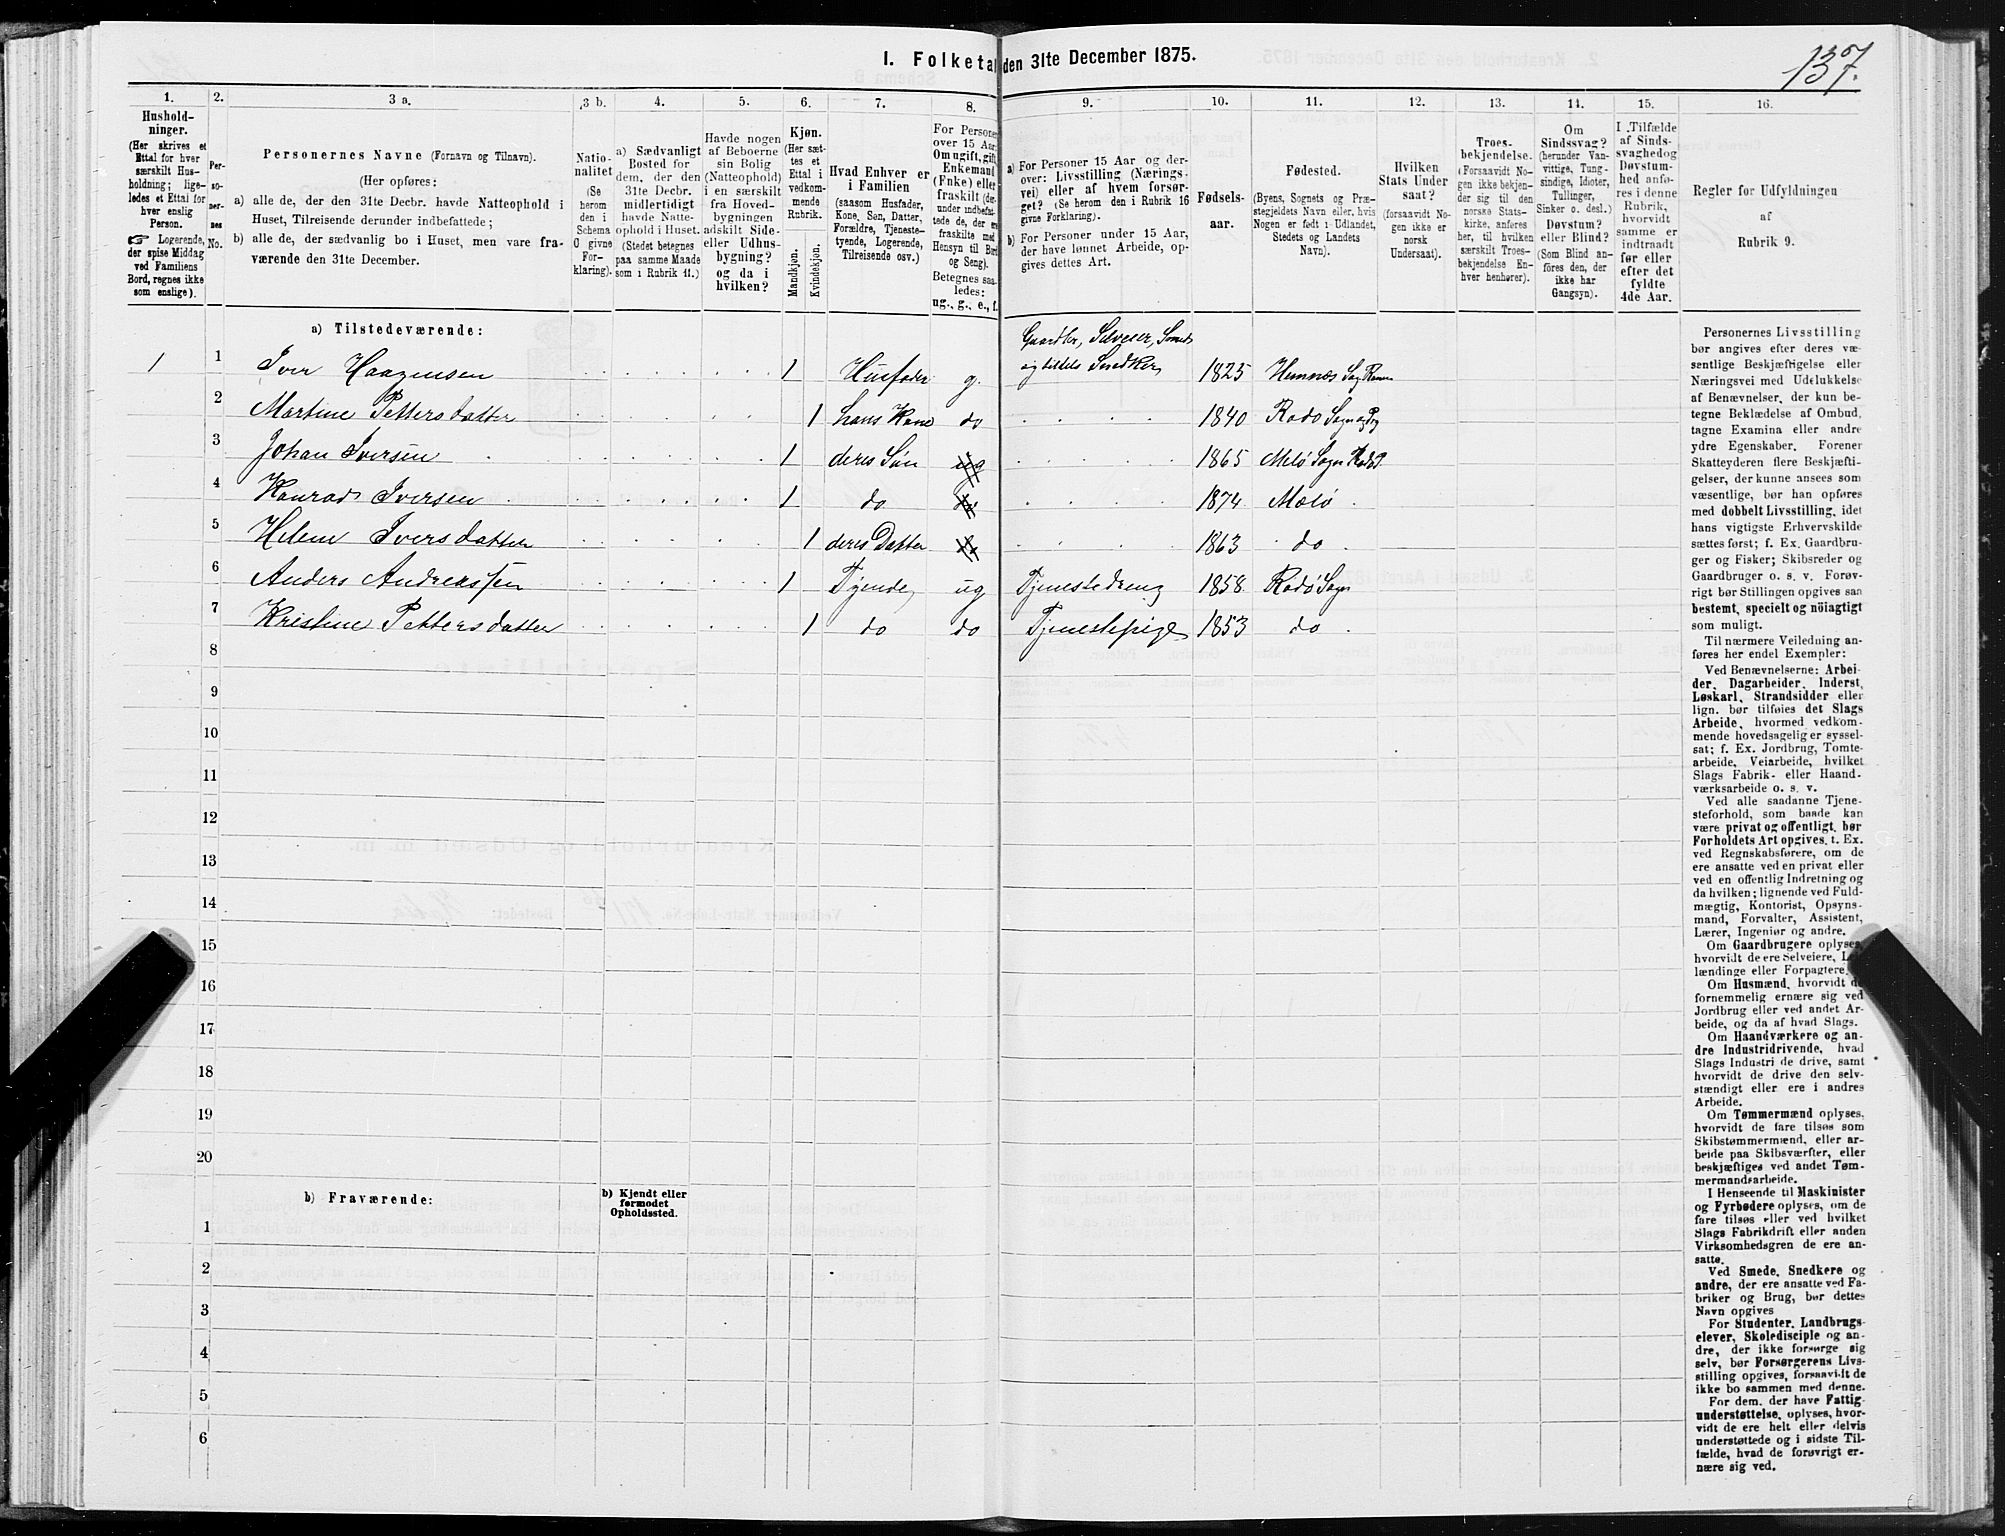 137.
I. Folketal den 31te December 1875.
1. 2. 3 a. 3 b. 4. 5. 6. 7. 8. 9. 10. 11. 12. 13. 14. 15. 16.
Hushold-
ninger.
(Her skrives et
Ettal for hver
særskilt Hus-
holdning; lige-
ledes et Ettal for
hver enslig
Person.
☞ Logerende,
der spise Middag
ved Familiens
Bord, regnes ikke
som enslige).
Per-
so-
ner-
nes
No.
Personernes Navne (Fornavn og Tilnavn).
(Her opføres:
a) alle de, der den 31te Decbr. havde Natteophold i
Huset, Tilreisende derunder indbefattede;
b) alle de, der sædvanlig bo i Huset, men vare fra-
værende den 31te December.
Natio-
nalitet
(Se
herom
den i
Schema
O givne
For-
klaring).
a) Sædvanligt
Bosted for
dem, der den
31te Decbr.
midlertidigt
havde Natte-
ophold i Huset.
(Stedet betegnes
paa samme Maade
som i Rubrik 11.)
Havde nogen
af Beboerne
sin Bolig
(Natteophold)
i en særskilt
fra Hoved-
bygningen
adskilt Side-
eller Udhus-
bygning?
og da i
hvilken?
Kjøn.
(Her sæt-
tes et
Ettal i
vedkom-
mende
Rubrik.
Mandkjøn.
Kvindekjøn.
Hvad Enhver er
i Familien
(saasom Husfader,
Kone, Søn, Datter,
Forældre, Tjeneste-
tyende, Logerende,
Tilreisende osv.)
For Personer
over 15 Aar:
Om ugift, gift,
Enkemand
(Enke) eller
fraskilt (der-
under indbefat-
tede de, der ere
fraskilte med
Hensyn til Bord
og Seng).
Betegnes saa-
ledes:
ug., g., e., f.
a) For Personer 15 Aar og der-
over: Livsstilling (Nærings-
vei) eller af hvem forsør-
get? (Se herom den i Rubrik 16
givne Forklaring).
b) For Personer under 15 Aar,
der have lønnet Arbeide, op-
gives dettes Art.
Fødsels-
aar.
Fødested.
(Byens, Sognets og Præ-
stegjeldets Navn eller, hvis
Nogen er født i Udlandet,
Stedets og Landets
Navn).
Hvilken
Stats Under
saat?
(forsaavidt No-
gen ikke er
norsk
Undersaat).
Troes-
bekjendelse.
(Forsaavidt No-
gen ikke bekjen-
der sig til den
norske Stats-
kirke, anføres
her, til hvilken
særskilt Troes-
bekjendelse En-
hver henhører).
Om
Sindssvag?
(herunder Van-
vittige, Tung-
sindige, Idioter,
Tullinger,
Sinker o. desl.)
Døvstum?
eller Blind?
(Som Blind an-
føres den, der
ikke har
Gangsyn).
I Tilfælde
af Sinds-
svaghed og
Døvstum-
hed anfø-
res i denne
Rubrik,
hvorvidt
samme er
indtraadt
før eller
efter det
fyldte
4de Aar.
Regler for Udfyldningen
af
Rubrik 9.
a) Tilstedeværende:
1 1 Iver Haagensen 1 Husfader g. Gaardbr, Selveier, Smed og tildels Snedker 1825 Hemnæs Sog Ranen
2 Martine Pettersdatter 1 hans Kone do 1840 Rødø Sogn og Prg
3 Johan Iversen 1 deres Søn ug 1865 Melø Sogn Rødø P.
4 Konrad Iversen 1 do do 1874 Melø
5 Helene Iversdatter 1 deres Datter do 1863 do
6 Anders Andreassen 1 Tyende ug Tjenestedreng 1858 Rødø Sogn
7 Kristine Pettersdatter 1 do do Tjenestepige 1853 do
8
9
10
11
12
13
14
15
16
17
18
19
20
b) Fraværende:
b) Kjendt eller
formodet
Opholdssted.
1
2
3
4
5
6
Personernes Livsstilling
bør angives efter deres væ-
sentlige Beskjæftigelse eller
Næringsvei med Udelukkelse
af Benævnelser, der kun be-
tegne Beklædelse af Ombud,
tagne Examina eller andre
ydre Egenskaber. Forener
Skatteyderen flere Beskjæfti-
gelser, der kunne ansees som
væsentlige, bør han opføres
med dobbelt Livsstilling, idet
hans vigtigste Erhvervskilde
sættes først; f. Ex. Gaardbru-
ger og Fisker; Skibsreder og
Gaardbruger o. s. v. Forøv-
rigt bør Stillingen opgives saa
bestemt, specielt og nöiagtigt
som muligt.
Til nærmere Veiledning an-
føres her endel Exempler:
Ved Benævnelserne: Arbei-
der, Dagarbeider, Inderst,
Løskarl, Strandsidder eller
lign. bør tilføies det Slags
Arbeide, hvormed vedkom-
mende hovedsagelig er syssel-
sat; f. Ex. Jordbrug, Tomte-
arbeide, Veiarbeide, hvilket
Slags Fabrik- eller Haand-
værksarbeide o. s. v.
Ved alle saadanne Tjene-
steforhold, som baade kan
være privat og offentligt, bør
Forholdets Art opgives, t. Ex.
ved Regnskabsførere, om de
ere ansatte ved en privat eller
ved en offentlig Indretning og
da hvilken; lignende ved Fuld-
mægtig, Kontorist, Opsyns-
mand, Forvalter, Assistent,
Lærer, Ingeniør og andre.
Om Gaardbrugere oplyses,
hvorvidt de ere Selveiere, Lei-
lændinge eller Forpagtere.
Om Husmænd, hvorvidt de
fornemmelig ernære sig ved
Jordbrug eller ved andet Ar-
beide, og da af hvad Slags.
Om Haandværkere og an-
dre Industridrivende, hvad
Slags Industri de drive, samt
hvorvidt de drive den selv-
stændigt eller ere i andres
Arbeide.
Om Tømmermænd oplyses,
hvorvidt de fare tilsøs som
Skibstømmermænd, eller ar-
beide paa Skibsværfter, eller
beskjæftiges ved andet Tøm-
mermandsarbeide.
I Henseende til Maskinister
og Fyrbødere oplyses, om de
fare tilsøs eller ved hvilket
Slags Fabrikdrift eller anden
Virksomhedsgren de ere an-
satte.
Ved Smede, Snedkere og
andre, der ere ansatte ved Fa-
briker og Brug, bør dettes
Navn opgives
For Studenter, Landbrugs-
elever, Skoledisciple og an-
dre, der ikke forsørge sig
selv, bør Forsørgerens Livs-
stilling opgives, forsaavidt de
ikke bo sammen med denne.
For dem, der have Fattig-
understøttelse, oplyses, hvor-
vidt de ere helt eller delvis
understøttede og i sidste Til-
fælde, hvad de forøvrigt er-
nære sig ved.